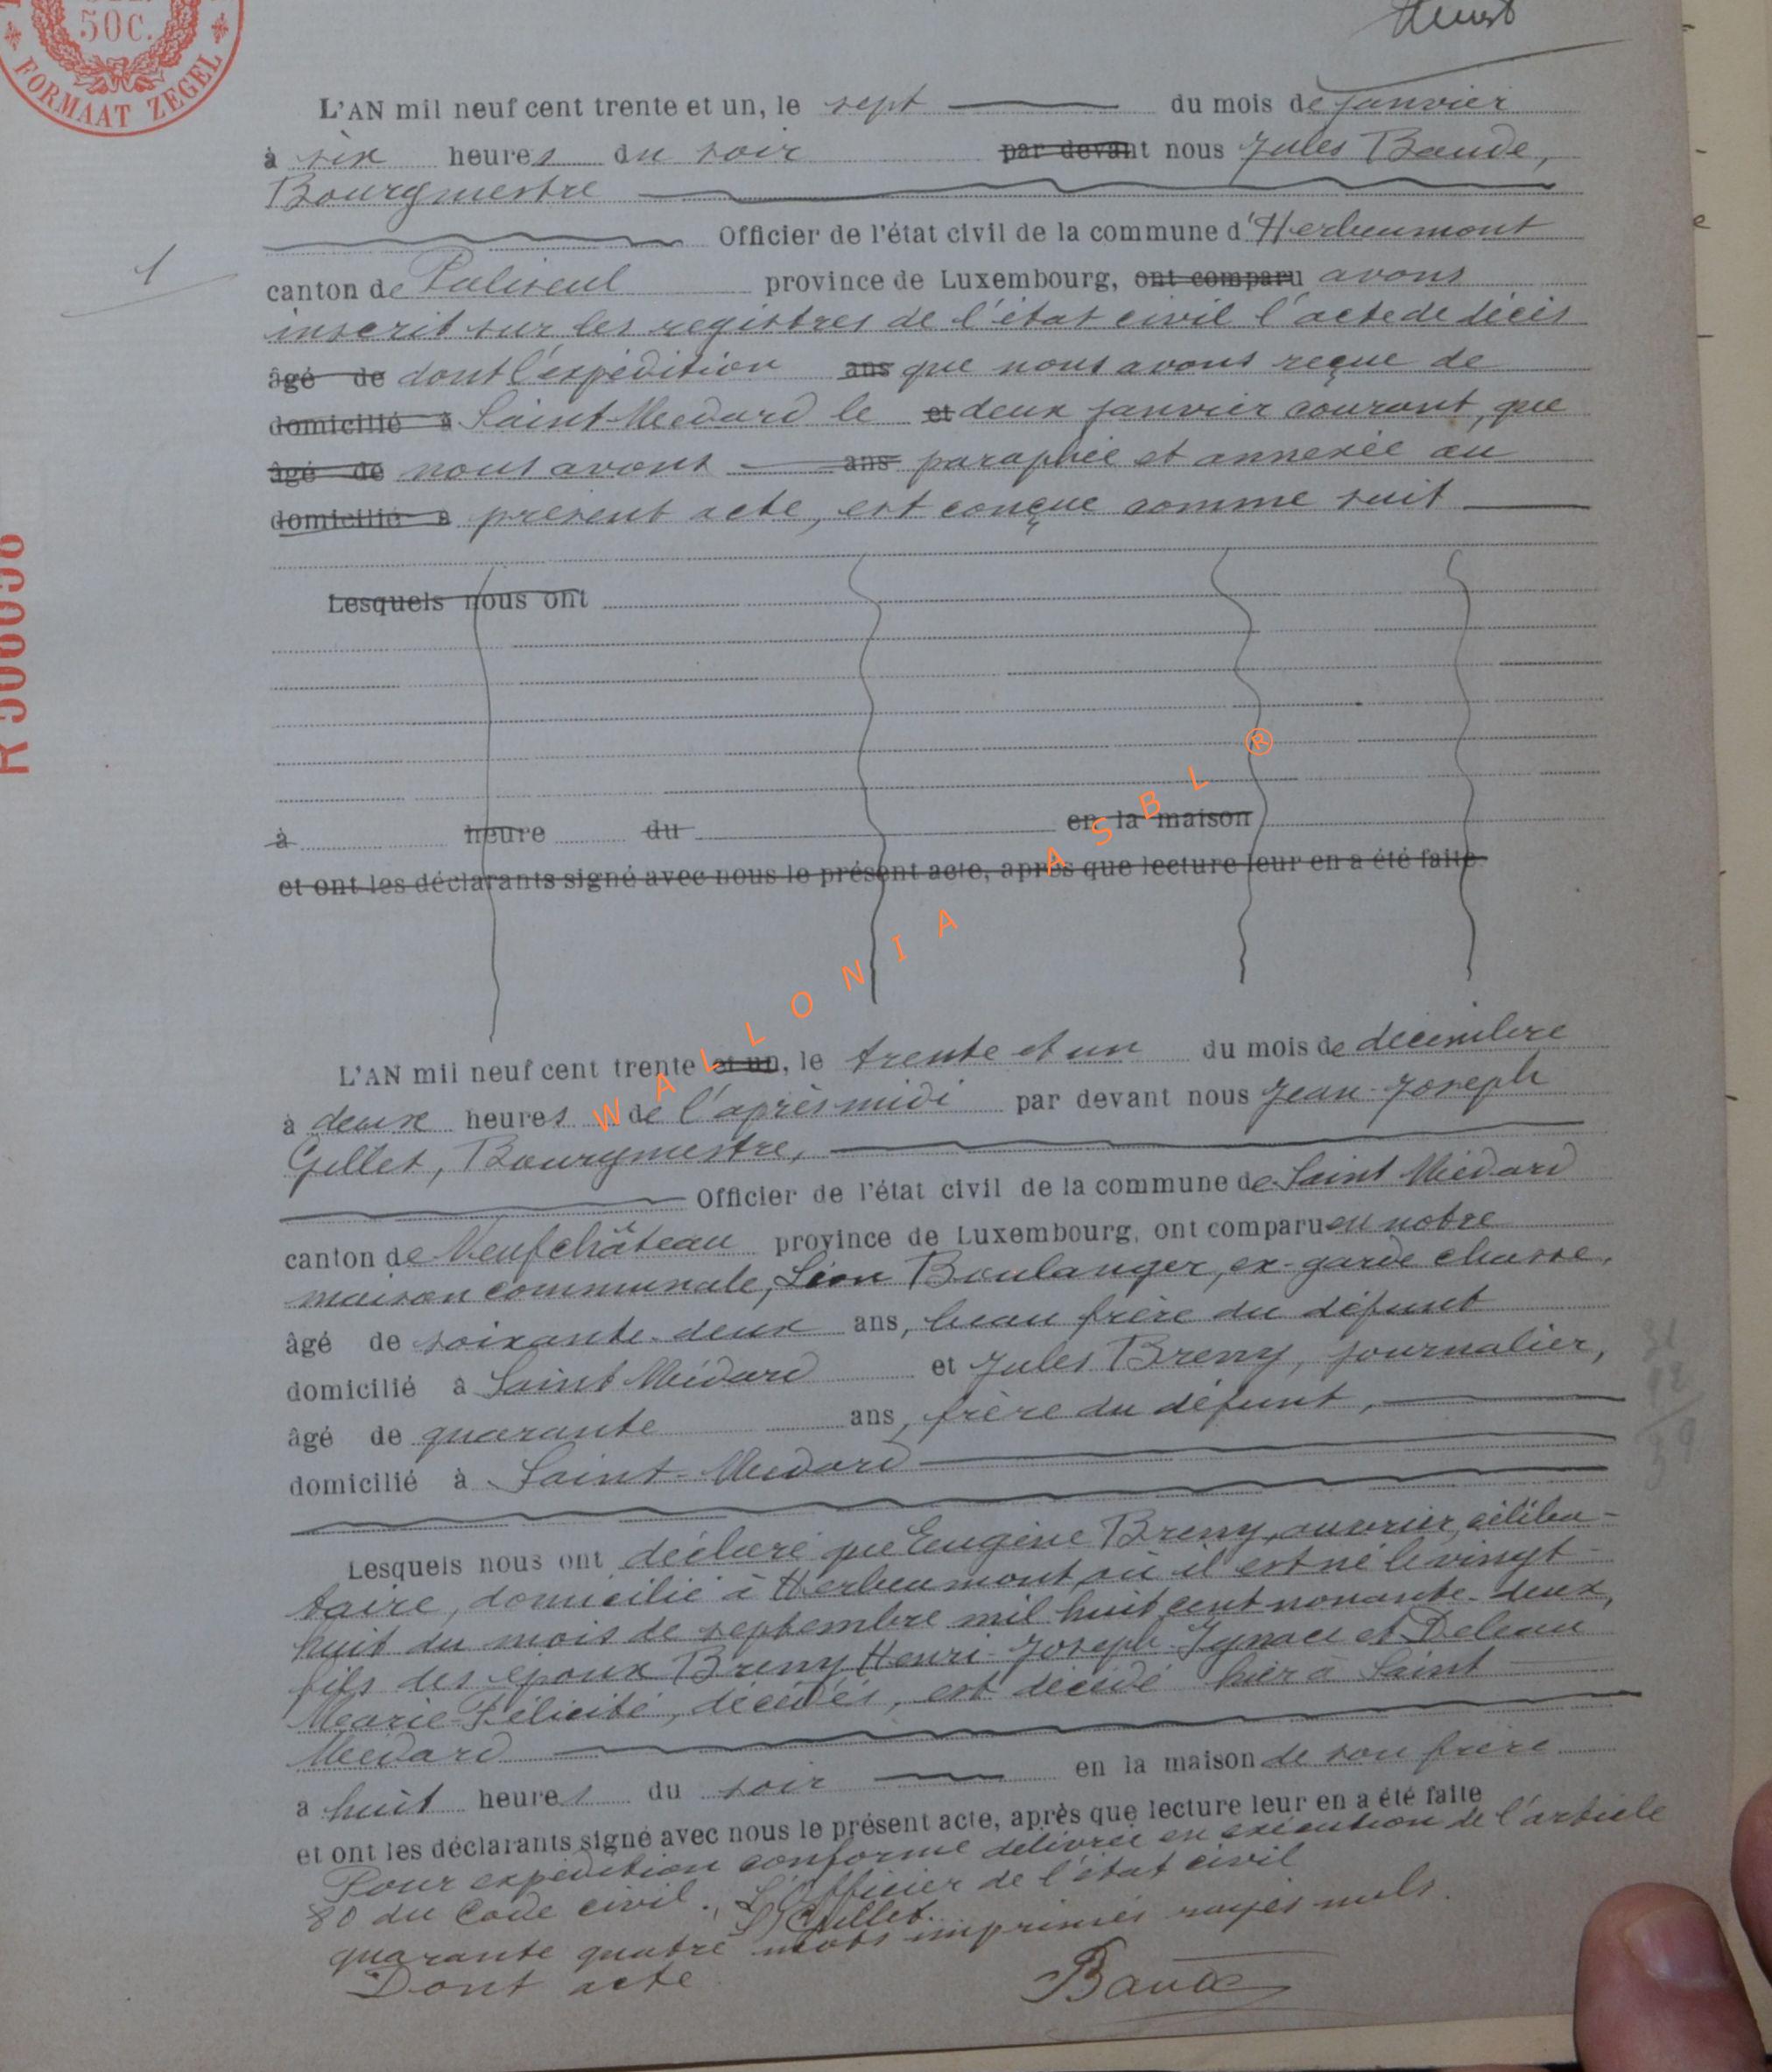 50C.
FORMAAT ZEGEL
L'AN mil neuf cent trente et un, le sept du mois de janvier
à six heures du soir par devant nous Jules Baude,
Bourgmestre
Officier de l'état civil de la commune d'Herbeumont
1
canton de Paliseul province de Luxembourg, ont comparu avons
inscrit sur les registres de l'état civil l'acte de décès
âgé de dont l'expédition ans que nous avons reçue de
domicilié à Saint-Médard le et deux janvier courant, que
âgé de nous avons ans paraphée et annexée au
domicilié à présent acte, est conçue comme suit
Lesquels nous ont
à heure du en la maison
et ont les déclarants signé avec nous le présent acte, après que lecture leur en a été faite.
WALLONIA ASBL ®
L'AN mil neuf cent trente et un, le trente et un du mois de décembre
à deux heures de l'après midi par devant nous Jean-Joseph
Gillet, Bourgmestre,
Officier de l'état civil de la commune de Saint Médard
canton de Neufchâteau province de Luxembourg, ont comparu en notre
maison communale, Léon Boulanger, ex-garde chasse,
âgé de soixante-deux ans, beau frère du défunt
domicilié à Saint Médard et Jules Breny, journalier,
âgé de quarante ans, frère du défunt,
domicilié à Saint-Médard
Lesquels nous ont déclaré que Eugène Breny, ouvrier, céliba-
taire, domicilié à Herbeumont où il est né le vingt-
huit du mois de septembre mil huit cent nonante-deux,
fils des époux Breny Henri-Joseph-Ignace et Deleau
Marie-Félicité, décédés, est décédé hier à Saint
Médard
à huit heures du soir en la maison de son frère
et ont les déclarants signé avec nous le présent acte, après que lecture leur en a été faite
Pour expédition conforme délivrée en exécution de l'article
80 du Code civil. L'Officier de l'état civil
S) Gillet.
quarante quatre mots imprimés rayés nuls.
Dont acte
Baude